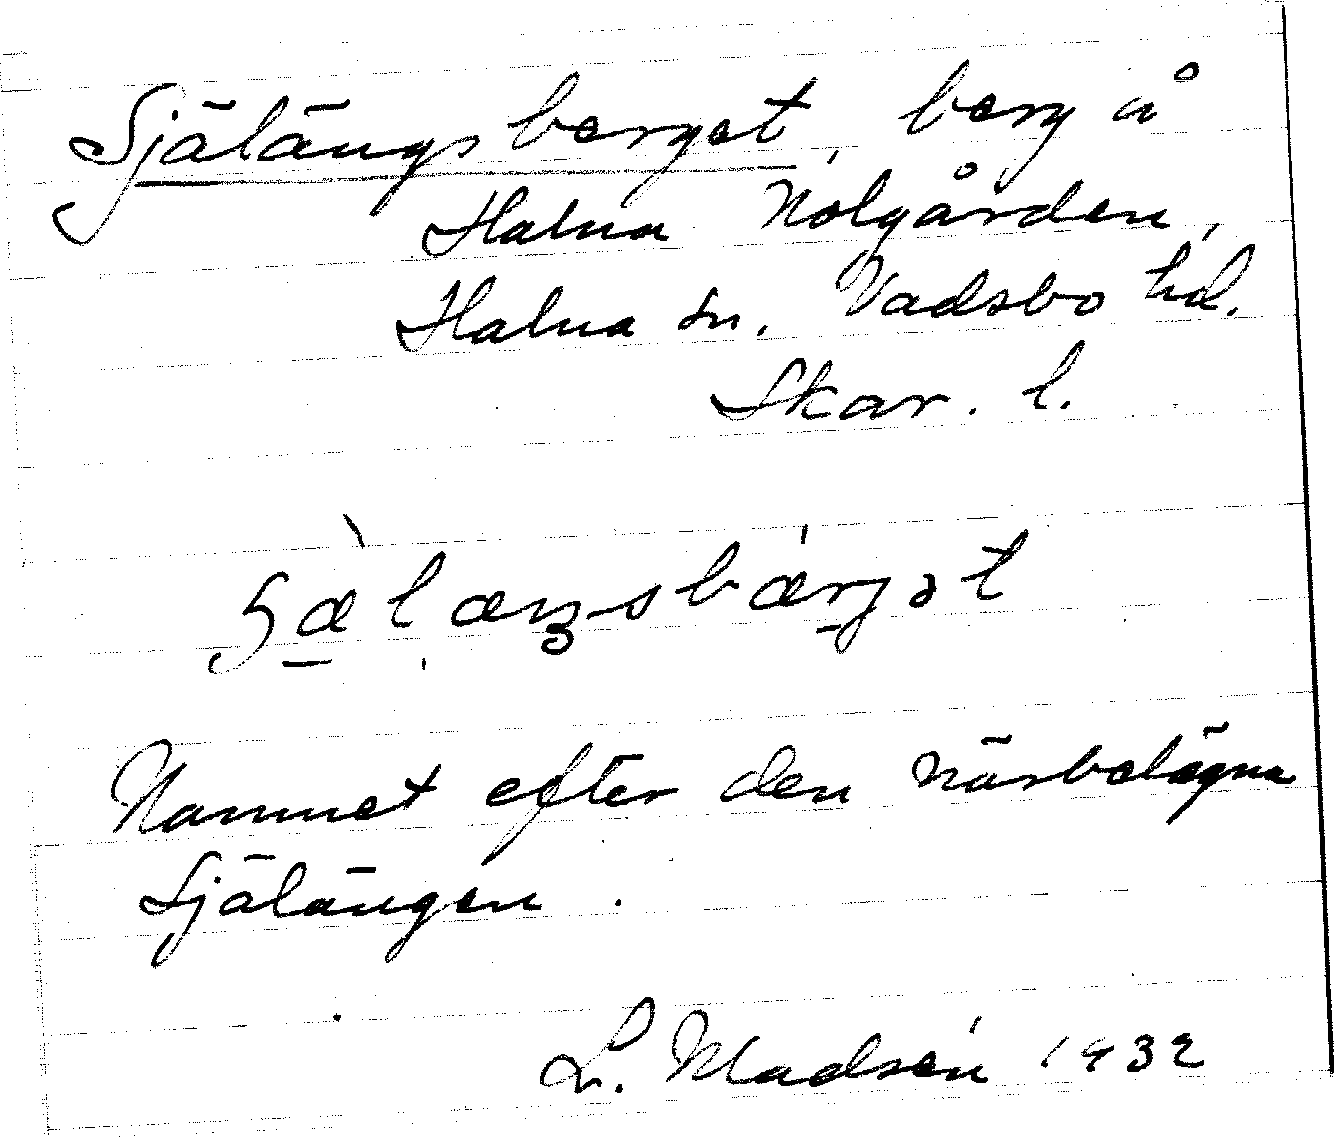 Själängsberget, berg å
Halna Nolgården,
Halna sn. Vadsbo hd.
Skar. l.
Namnet efter den närbelägna
Själängen.
L. Madsén 1932